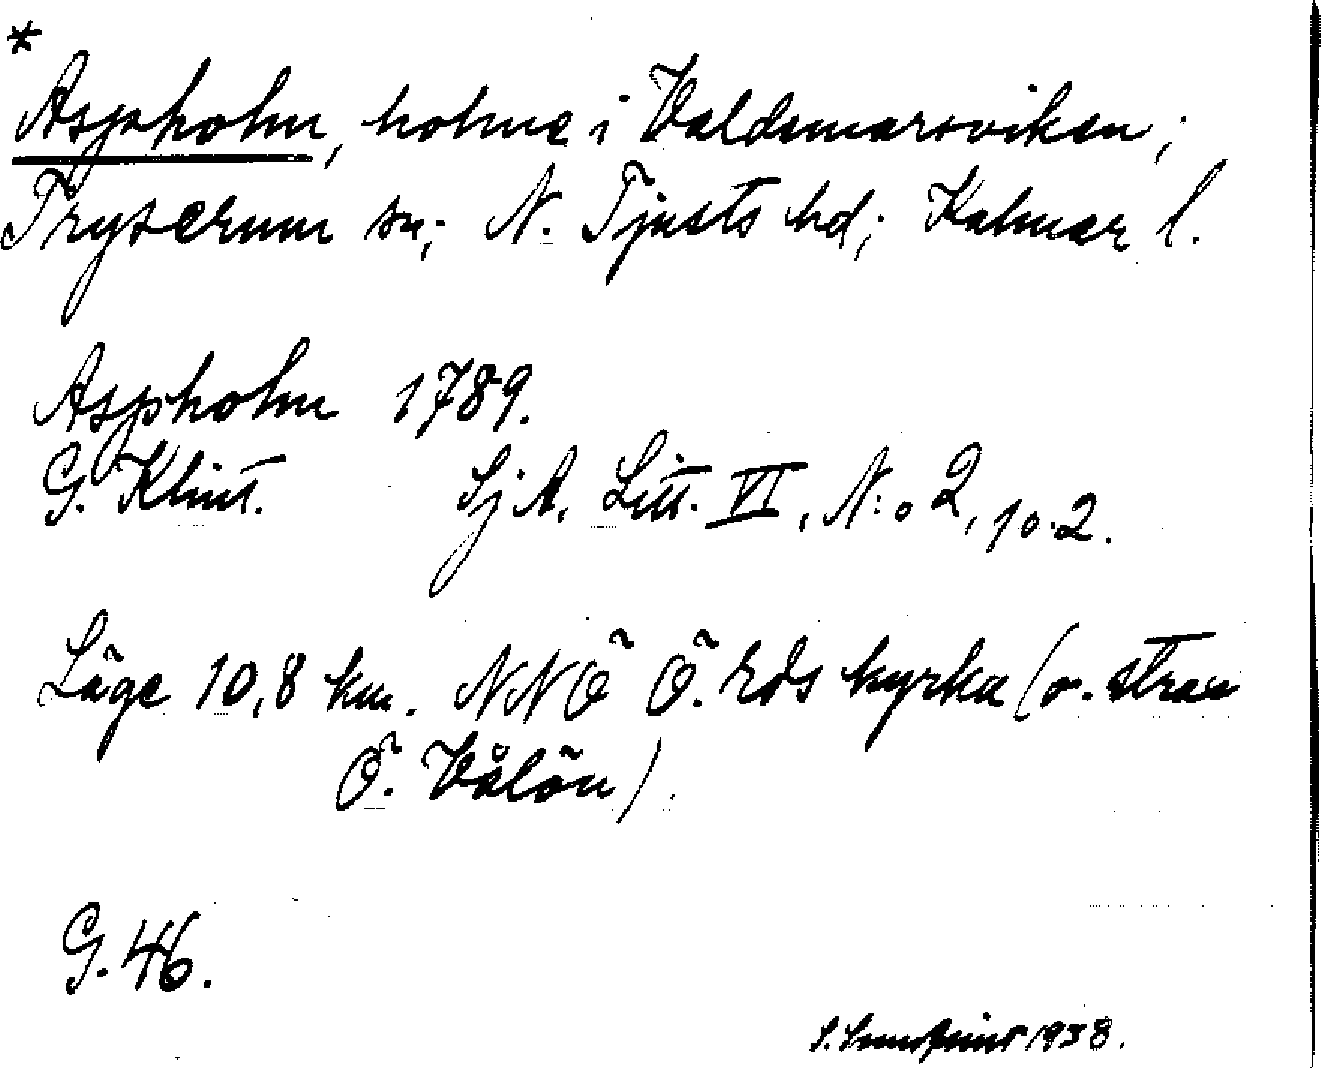 *
Aspholm, holme i Valdemarsviken;
Tryserum sn; N. Tjusts hd; Kalmar l.
Aspholm 1789.
G. Klint. SjA, Litt. VI, N:o 2, p. 2.
Läge 10,8 km. NNÖ Ö. Eds kyrka (v. stran
Ö. Vålön).
G. 46.
S. 1938.